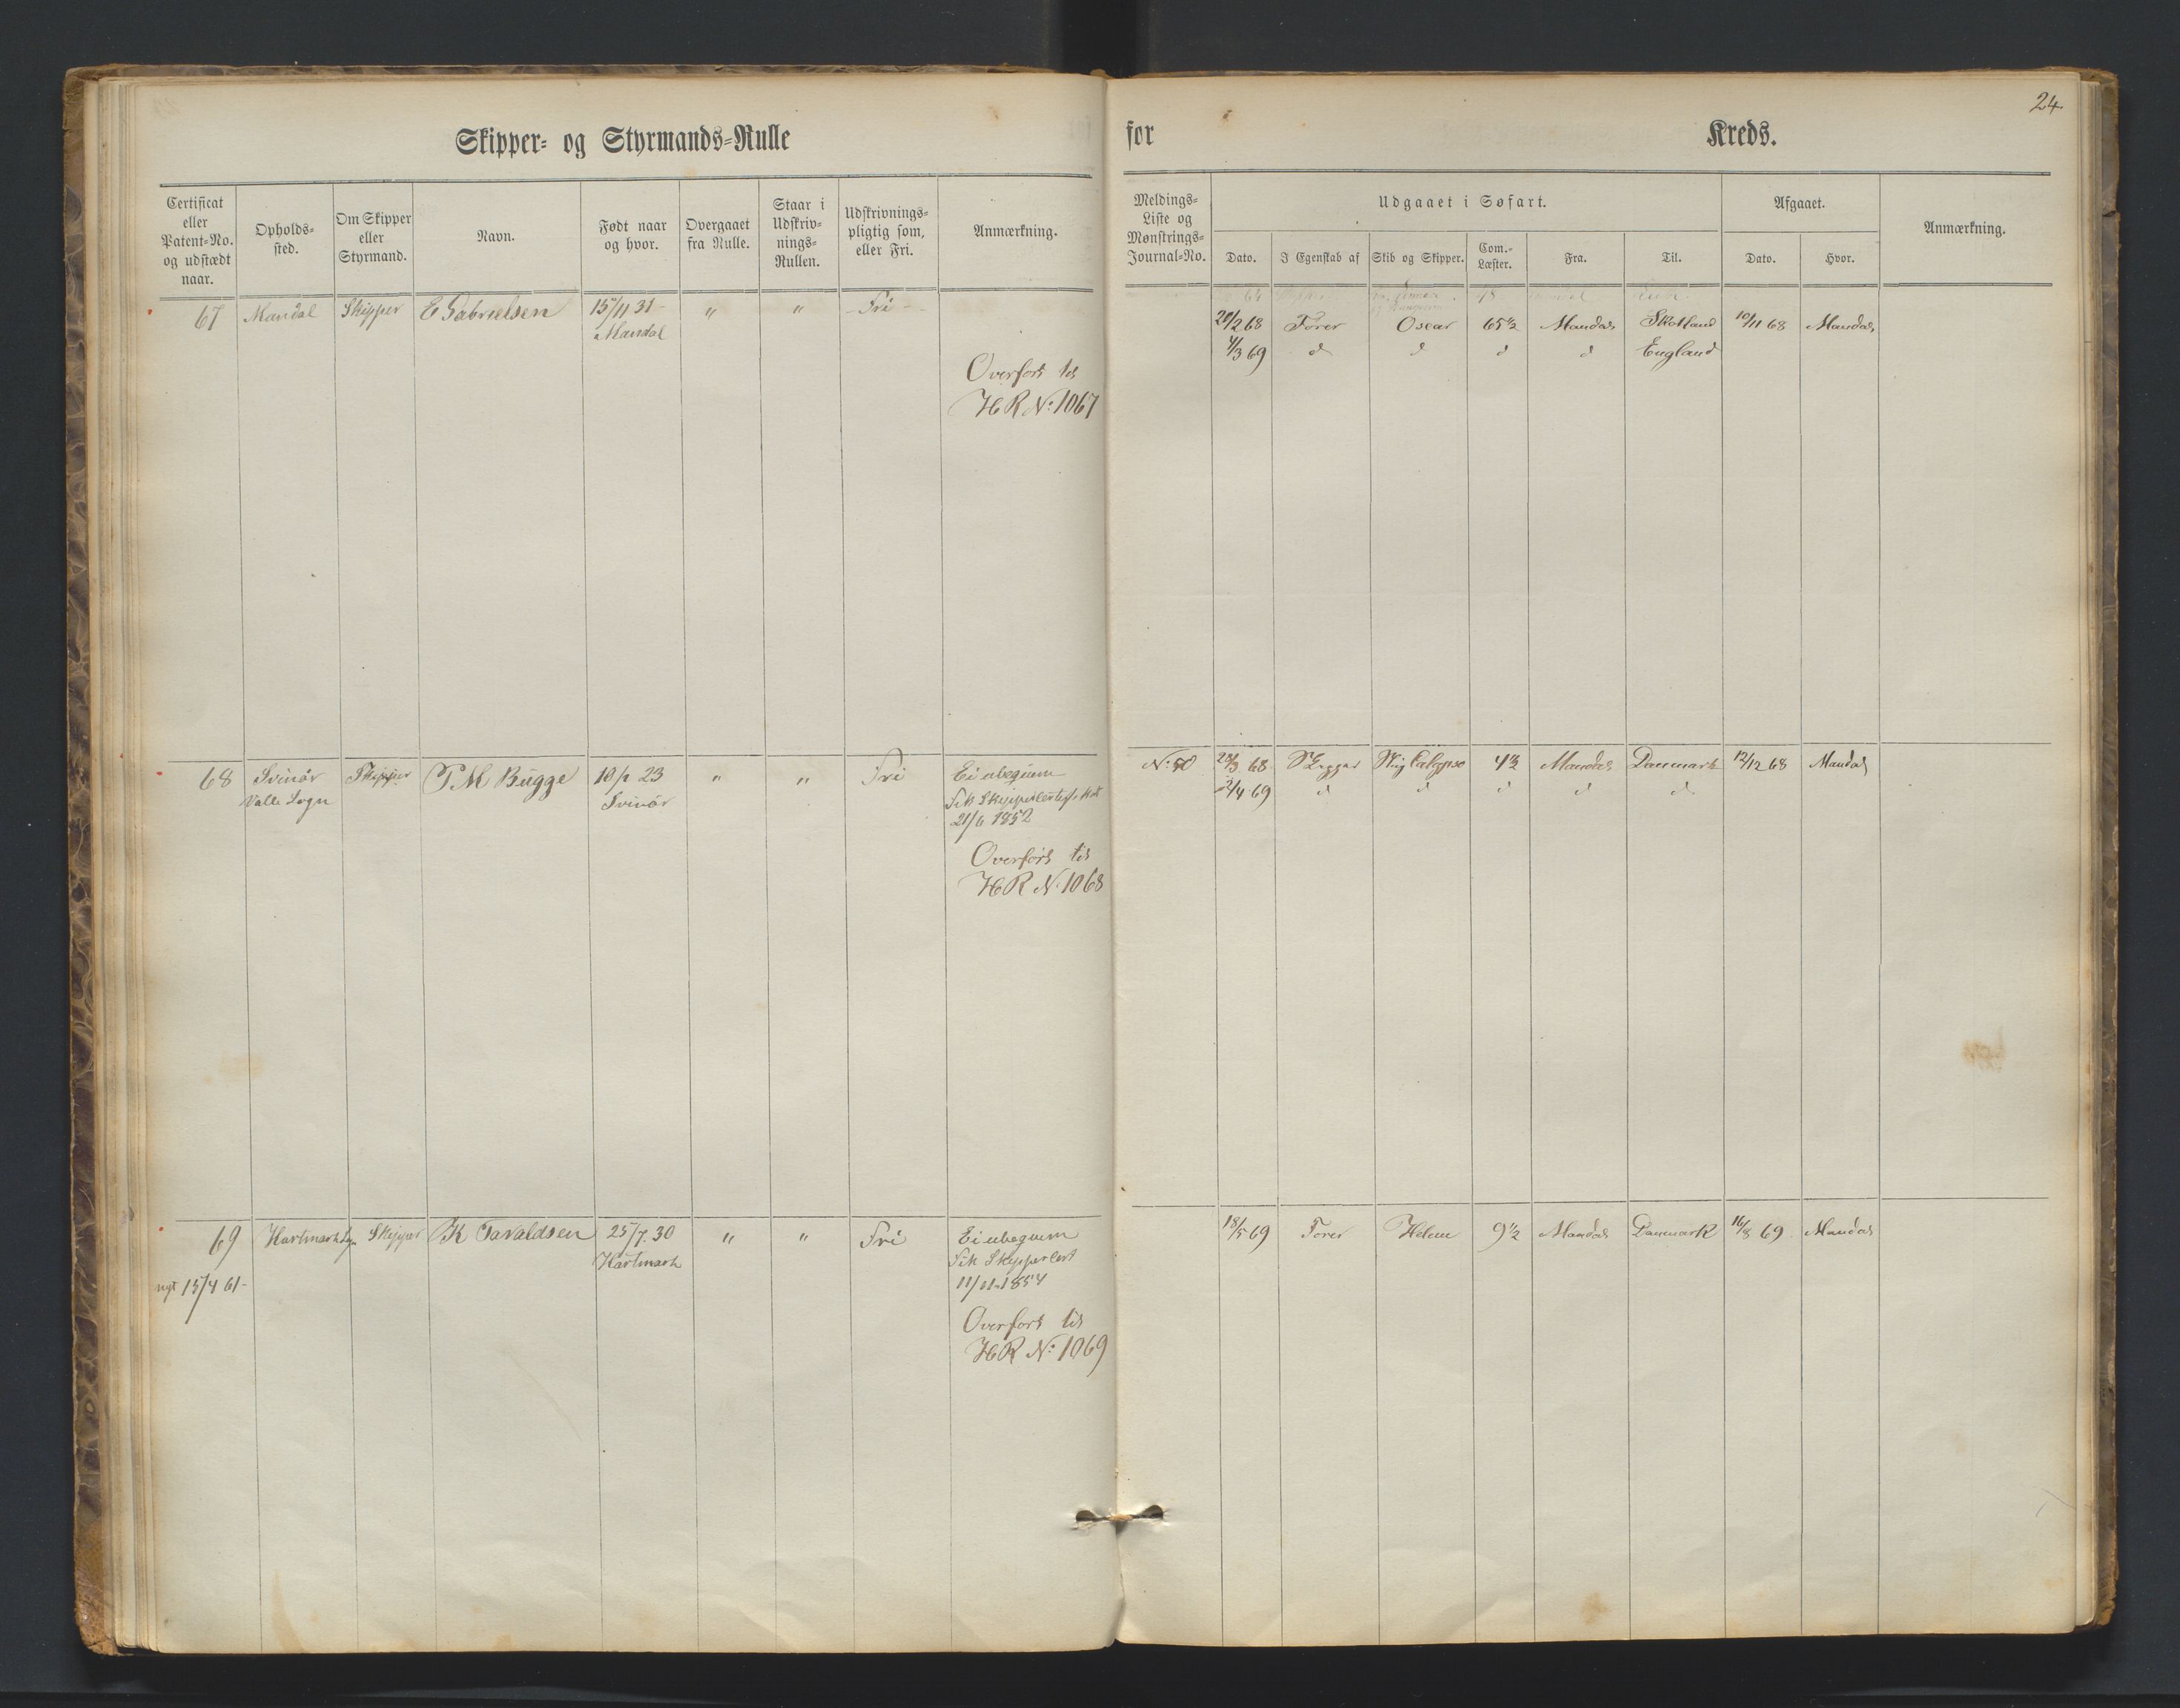 24
Skipper- og Styrmands-Rulle
for Kreds.
Certificat eller Patent-No. og udstædt naar.
Opholds-sted.
Om Skipper eller Styrmand.
Navn.
Født naar og hvor.
Overgaaet fra Rulle.
Staar i Udskriv-nings-Rullen.
Udskrivnings-pligtig som, eller Fri.
Anmærkning.
Meldings-Liste og Mønstrings-Journal-No.
Udgaaet i Søfart.
Dato.
I Egenskab af
Skib og Skipper.
Com.-Læster.
Fra.
Til.
Afgaaet.
Dato.
Hvor.
Anmærkning.
67 Mandal Skipper E Gabrielsen 15/11 31 - " " - Fri -
Mandal
Overført til
HR No: 1067
20/2 68 Fører Oscar 65 1/2 Mandal Skotland 10/11 68 Mandal
4/3 69 d d d d England
68 Svinör Skipper T M Bugge 10/1 23 " " Fri Ei ubeqvem
Valle Sogn Svinör Fik
21/6 1852
Overført til
HR No. 1068
No: 50 28/3 68 Calypso 4 1/2 Mandal Danmark 12/12 68 Mandal
2/4 69 d d d d d
69 Hartmark Sogn Skipper K Tavaldsen 25/7.30 " " Fri Ei ubeqvem
Hartmark Fik Skippercert
nyt 15/4 61 - 11/11 1854
Overført til
HR No: 1069
18/5 69 Fører Helene 9 1/2 Mandal Danmark 16/8 69 Mandal